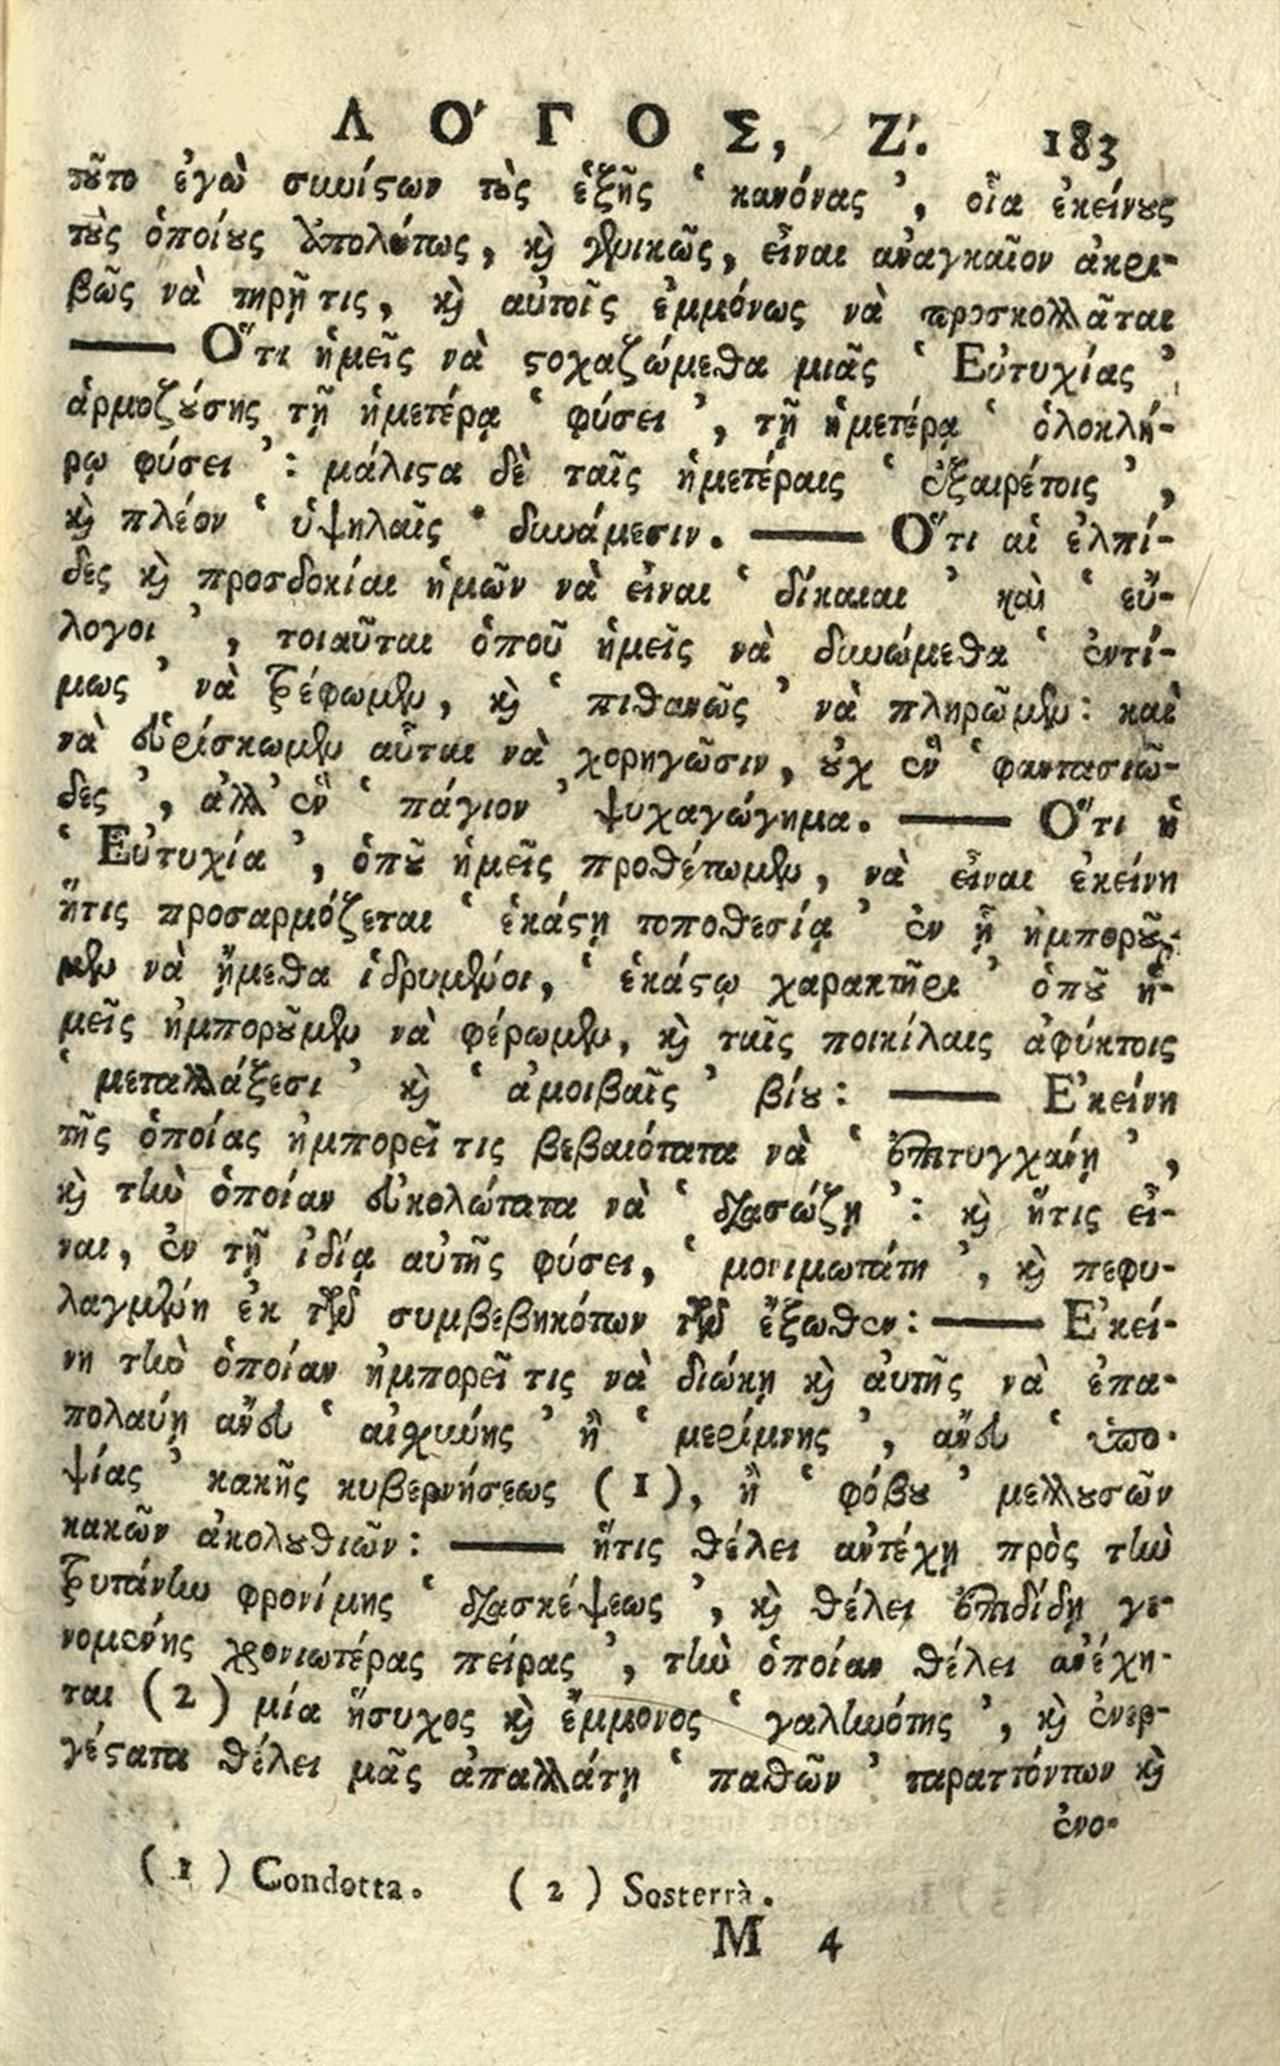 ΛΌΓΟΣ, Ζ΄. 183
τοῦτο ἐγὼ συνίστων τοὺς ἑξῆς ‘ κανόνας ’, οἷα ἐκείνους
τοὺς ὁποίους ἀπολύτως, καὶ γενικῶς, εἶναι ἀναγκαῖον ἀκρι-
βῶς νὰ τηρῇ τις, καὶ αὐτοῖς ἐμμόνως νὰ προσκολλᾶται
—— Ὅτι ἡμεῖς νὰ στοχαζώμεθα μιᾶς ‘ Εὐτυχίας ’
ἁρμοζούσης τῇ ἡμετέρᾳ ‘ φύσει ’, τῇ ἡμετέρᾳ ‘ ὁλοκλή-
ρῳ φύσει ’: μάλιστα δὲ ταῖς ἡμετέραις ‘ ἐξαιρέτοις ’,
καὶ πλέον ‘ ὑψηλαῖς ’ δυνάμεσιν. —— Ὅτι αἱ ἐλπί-
δες καὶ προσδοκίαι ἡμῶν νὰ εἶναι ‘ δίκαιαι ’ καὶ ‘ εὔ-
λογοι ’, τοιαῦται ὁποῦ ἡμεῖς νὰ δυνώμεθα ‘ ἐντί-
μως ’ νὰ τρέφωμεν, καὶ ‘ πιθανῶς ’ νὰ πληρῶμεν: καὶ
νὰ εὑρίσκωμεν αὗται νὰ χορηγῶσιν, οὐχ ἓν ‘ φαντασιῶ-
δες ’, ἀλλ’ ἓν ‘ πάγιον ’ ψυχαγώγημα. —— Ὅτι ἡ
‘ Εὐτυχία ’, ὁποῦ ἡμεῖς προθέτωμεν, νὰ εἶναι ἐκείνη
ἥτις προσαρμόζεται ‘ ἑκάστῃ τοποθεσίᾳ ’ ἐν ᾗ ἠμποροῦ-
μεν νὰ ἤμεθα ἱδρυμένοι, ‘ ἑκάστῳ χαρακτῆρι ’ ὁποῦ ἡ-
μεῖς ἠμποροῦμεν νὰ φέρωμεν, καὶ ταῖς ποικίλαις ἀφύκτοις
‘ μεταλλάξεσι ’ καὶ ‘ ἀμοιβαῖς ’ βίου: —— Ἐκείνη
τῆς ὁποίας ἠμπορεῖ τις βεβαιότατα νὰ ‘ ἐπιτυγχαίνῃ ’,
καὶ τὴν ὁποίαν εὐκολώτατα νὰ ‘ διασώζῃ ’: καὶ ἥτις εἶ-
ναι, ἐν τῇ ἰδίᾳ αὐτῆς φύσει, ‘ μονιμωτάτη ’, καὶ πεφυ-
λαγμένη ἐκ τῶν συμβεβηκότων τῶν ἔξωθεν: —— Ἐκεί-
νη τὴν ὁποίαν ἠμπορεῖ τις νὰ διώκῃ καὶ αὐτῆς νὰ ἐπα-
πολαύῃ ἄνευ ‘ αἰσχύνης ’ ἢ ‘ μερίμνης ’, ἄνευ ‘ ὑπο-
ψίας ’ κακῆς κυβερνήσεως (1), ἢ ‘ φόβου ’ μελλουσῶν
κακῶν ἀκολουθιῶν: —— ἥτις θέλει ἀντέχῃ πρὸς τὴν
ἐξέτασιν φρονίμης ‘ διασκέψεως ’, καὶ θέλει ἐπιδίδῃ γε-
νομένης χρονιωτέρας πείρας ’, τὴν ὁποίαν θέλει ἀνέχη-
ται (2) μία ἥσυχος καὶ ἔμμονος ‘ γαληνότης ’, καὶ ἐνερ-
γέστατα θέλει μᾶς ἀπαλλάτῃ ‘ παθῶν ’ ταραττόντων καὶ
ἐνο-
(1) Condotta. (2) Sosterrà.
M 4